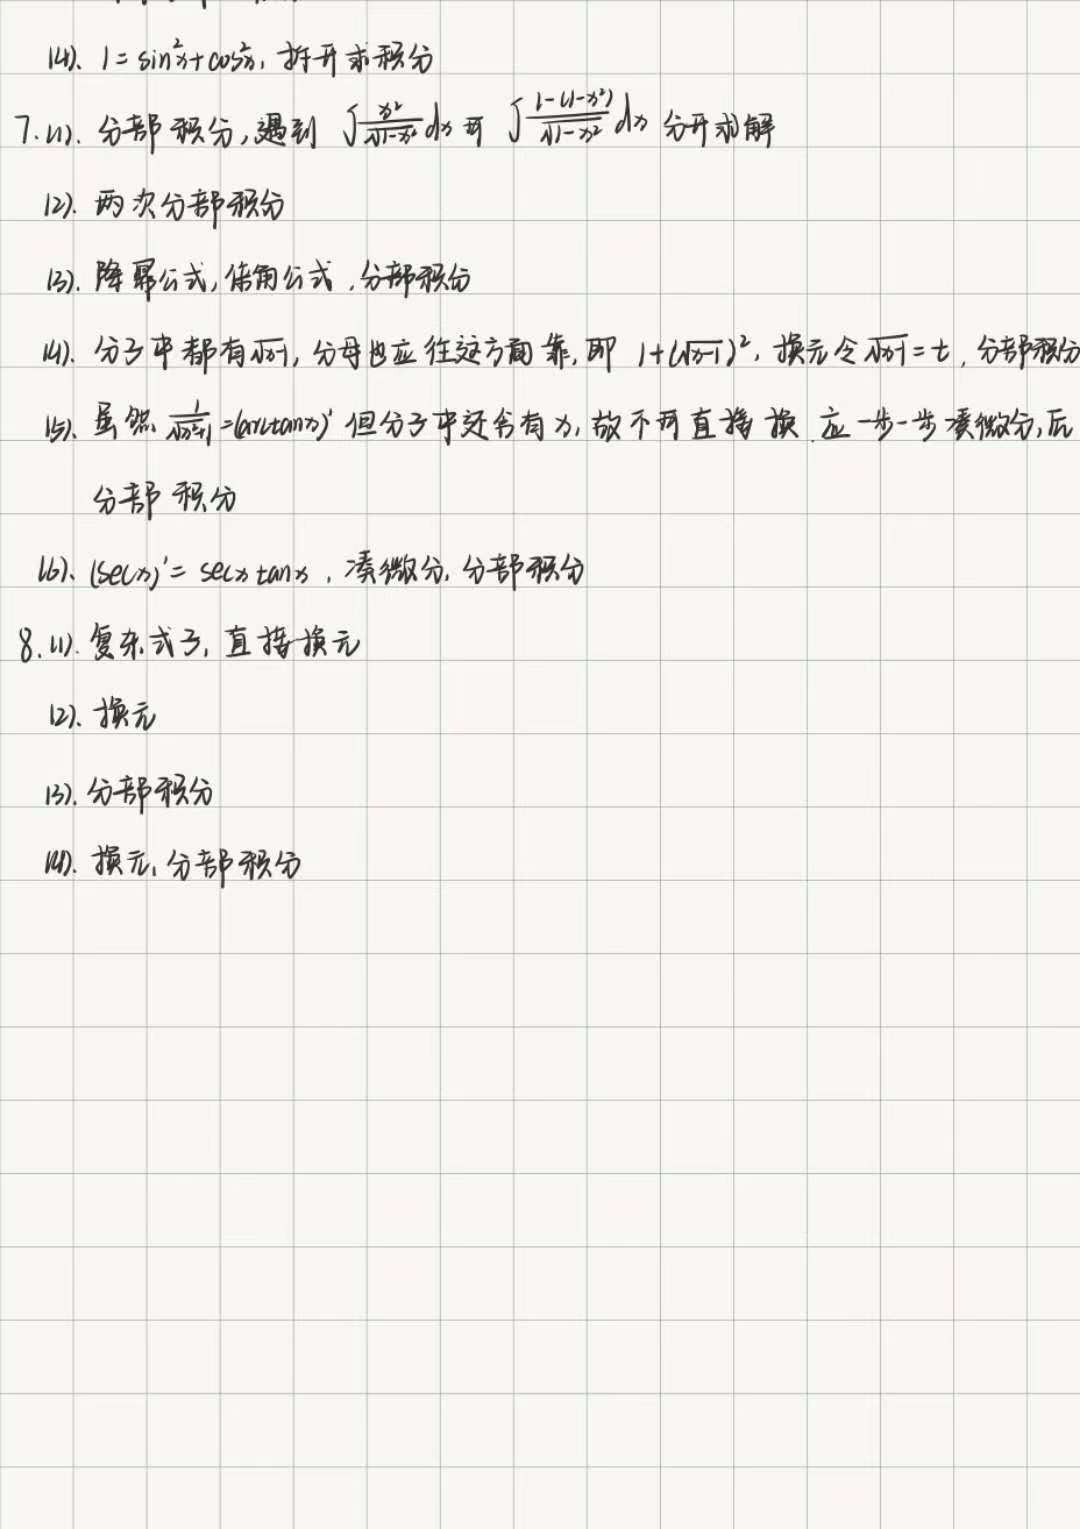 (4). 1=sin²x+cos²x, 拆开求积分
7.(1). 分部积分,遇到 ∫x²/√(1-x²) dx 可 ∫(1-(1-x²))/√(1-x²) dx 分开求解
(2). 两次分部积分
(3). 降幂公式,倍角公式,分部积分
(4). 分子中都有√(x-1), 分母也应往这方面靠,即 1+(√(x-1))², 换元令√(x-1)=t, 分部积分
(5). 虽然 1/√(x²+1)=(arctanx)' 但分子中还含有x, 故不可直接换.应一步一步凑微分,后
分部积分
(6). (secx)'=secxtanx, 凑微分,分部积分
8.(1). 复杂式子,直接换元
(2). 换元
(3). 分部积分
(4). 换元,分部积分